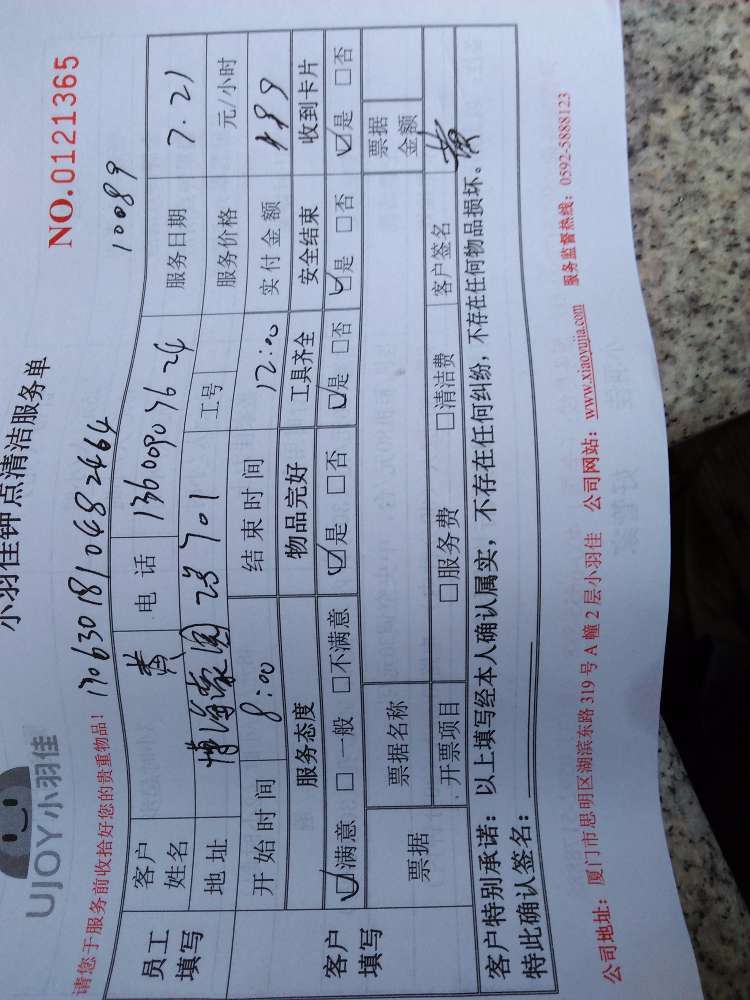 小羽佳钟点清洁服务单
UJOY小羽佳
NO.0121365
请您于服务前收拾好您的贵重物品!
1706301810482464
10089
员工填写
客户姓名 黄 电话 13600907624 服务日期 7.21
地址 博海豪园 23 701 工号 服务价格 元/小时
客户填写
开始时间 8:00 结束时间 12:00 实付金额
服务态度 物品完好 工具齐全 安全结束 收到卡片
☑满意 □一般 □不满意 ☑是 □否 ☑是 □否 ☑是 □否 ☑是 □否
票据 票据名称 票据金额
开票项目 □服务费 □清洁费 客户签名 黄
客户特别承诺:以上填写经本人确认属实,不存在任何纠纷,不存在任何物品损坏。
特此确认签名:
公司地址:厦门市思明区湖滨东路319号A幢2层小羽佳 公司网站:www.xiaoyujia.com 服务监督热线:0592-5888123